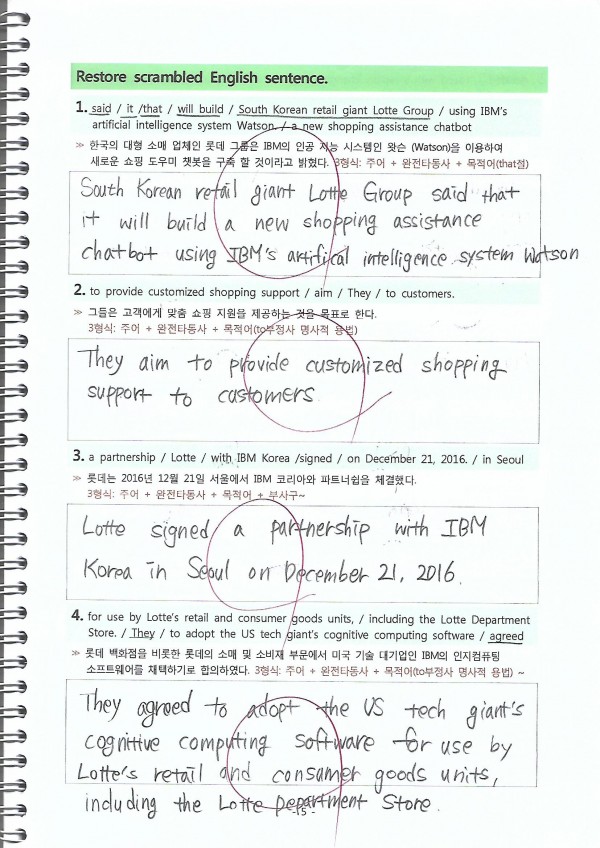 Restore scrambled English sentence.
1. said / it /that / will build / South Korean retail giant Lotte Group / using IBM's
artificial intelligence system Watson. / a new shopping assistance chatbot
≫ 한국의 대형 소매 업체인 롯데 그룹은 IBM의 인공 지능 시스템인 왓슨 (Watson)을 이용하여
새로운 쇼핑 도우미 챗봇을 구축 할 것이라고 밝혔다. 3형식: 주어 + 완전타동사 + 목적어(that절)
South Korean retail giant Lotte Group said that
it will build a new shopping assistance
chatbot using IBM's artifical intelligence system Watson
2. to provide customized shopping support / aim / They / to customers.
≫ 그들은 고객에게 맞춤 쇼핑 지원을 제공하는 것을 목표로 한다.
3형식: 주어 + 완전타동사 + 목적어(to부정사 명사적 용법)
They aim to provide customized shopping
support to customers
3. a partnership / Lotte / with IBM Korea /signed / on December 21, 2016. / in Seoul
≫ 롯데는 2016년 12월 21일 서울에서 IBM 코리아와 파트너쉽을 체결했다.
3형식: 주어 + 완전타동사 + 목적어 + 부사구~
Lotte signed a partnership with IBM
Korea in Seoul on December 21, 2016.
4. for use by Lotte's retail and consumer goods units, / including the Lotte Department
Store. / They / to adopt the US tech giant's cognitive computing software / agreed
≫ 롯데 백화점을 비롯한 롯데의 소매 및 소비재 부문에서 미국 기술 대기업인 IBM의 인지컴퓨팅
소프트웨어를 채택하기로 합의하였다. 3형식: 주어 + 완전타동사 + 목적어(to부정사 명사적 용법) ~
They agreed to adopt the US tech giant's
cognitive computing software for use by
Lotte's retail and consumer goods units,
including the Lotte Department Store.
- 15 -